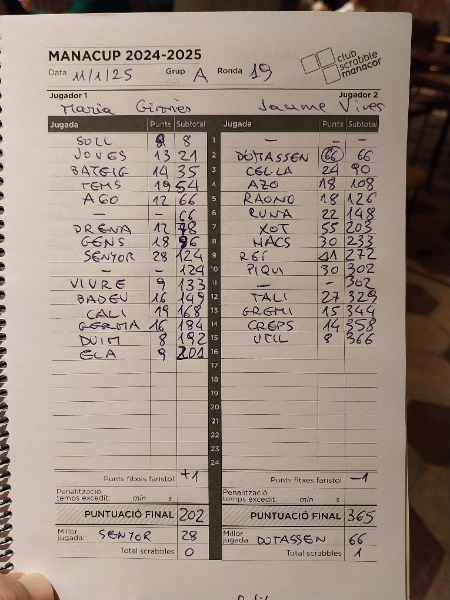 MANACUP 2024-2025
club scrabble manacor
Data 11/1/25 Grup A Ronda 19
Jugador 1 Jugador 2
Maria Gironès Jaume Vives
Jugada Punts Subtotal Jugada Punts Subtotal
SOLL 8 8 1 — — —
JOVES 13 21 2 DOTASSEN 66 66
BATEIG 14 35 3 CELLA 24 90
TEMS 19 54 4 AZO 18 108
AGO 12 66 5 RAONO 18 126
— — 66 6 RUNA 22 148
DRENA 12 78 7 XOT 55 203
GENS 18 96 8 HACS 30 233
SENYOR 28 124 9 REI 41 272
— — 124 10 PIQUI 30 302
VIVRE 9 133 11 — — 302
BADEU 16 149 12 TALI 27 329
CALI 19 168 13 GREMI 15 344
GERMA 16 184 14 CREPS 14 358
DUIM 8 192 15 UTIL 8 366
ELA 9 201 16
17
18
19
20
21
22
23
24
Punts fitxes faristol +1 Punts fitxes faristol -1
Penalització temps excedit: min s Penalització temps excedit: min s
PUNTUACIÓ FINAL 202 PUNTUACIÓ FINAL 365
Millor jugada: SENYOR 28 Millor jugada DOTASSEN 66
Total scrabbles 0 Total scrabbles 1